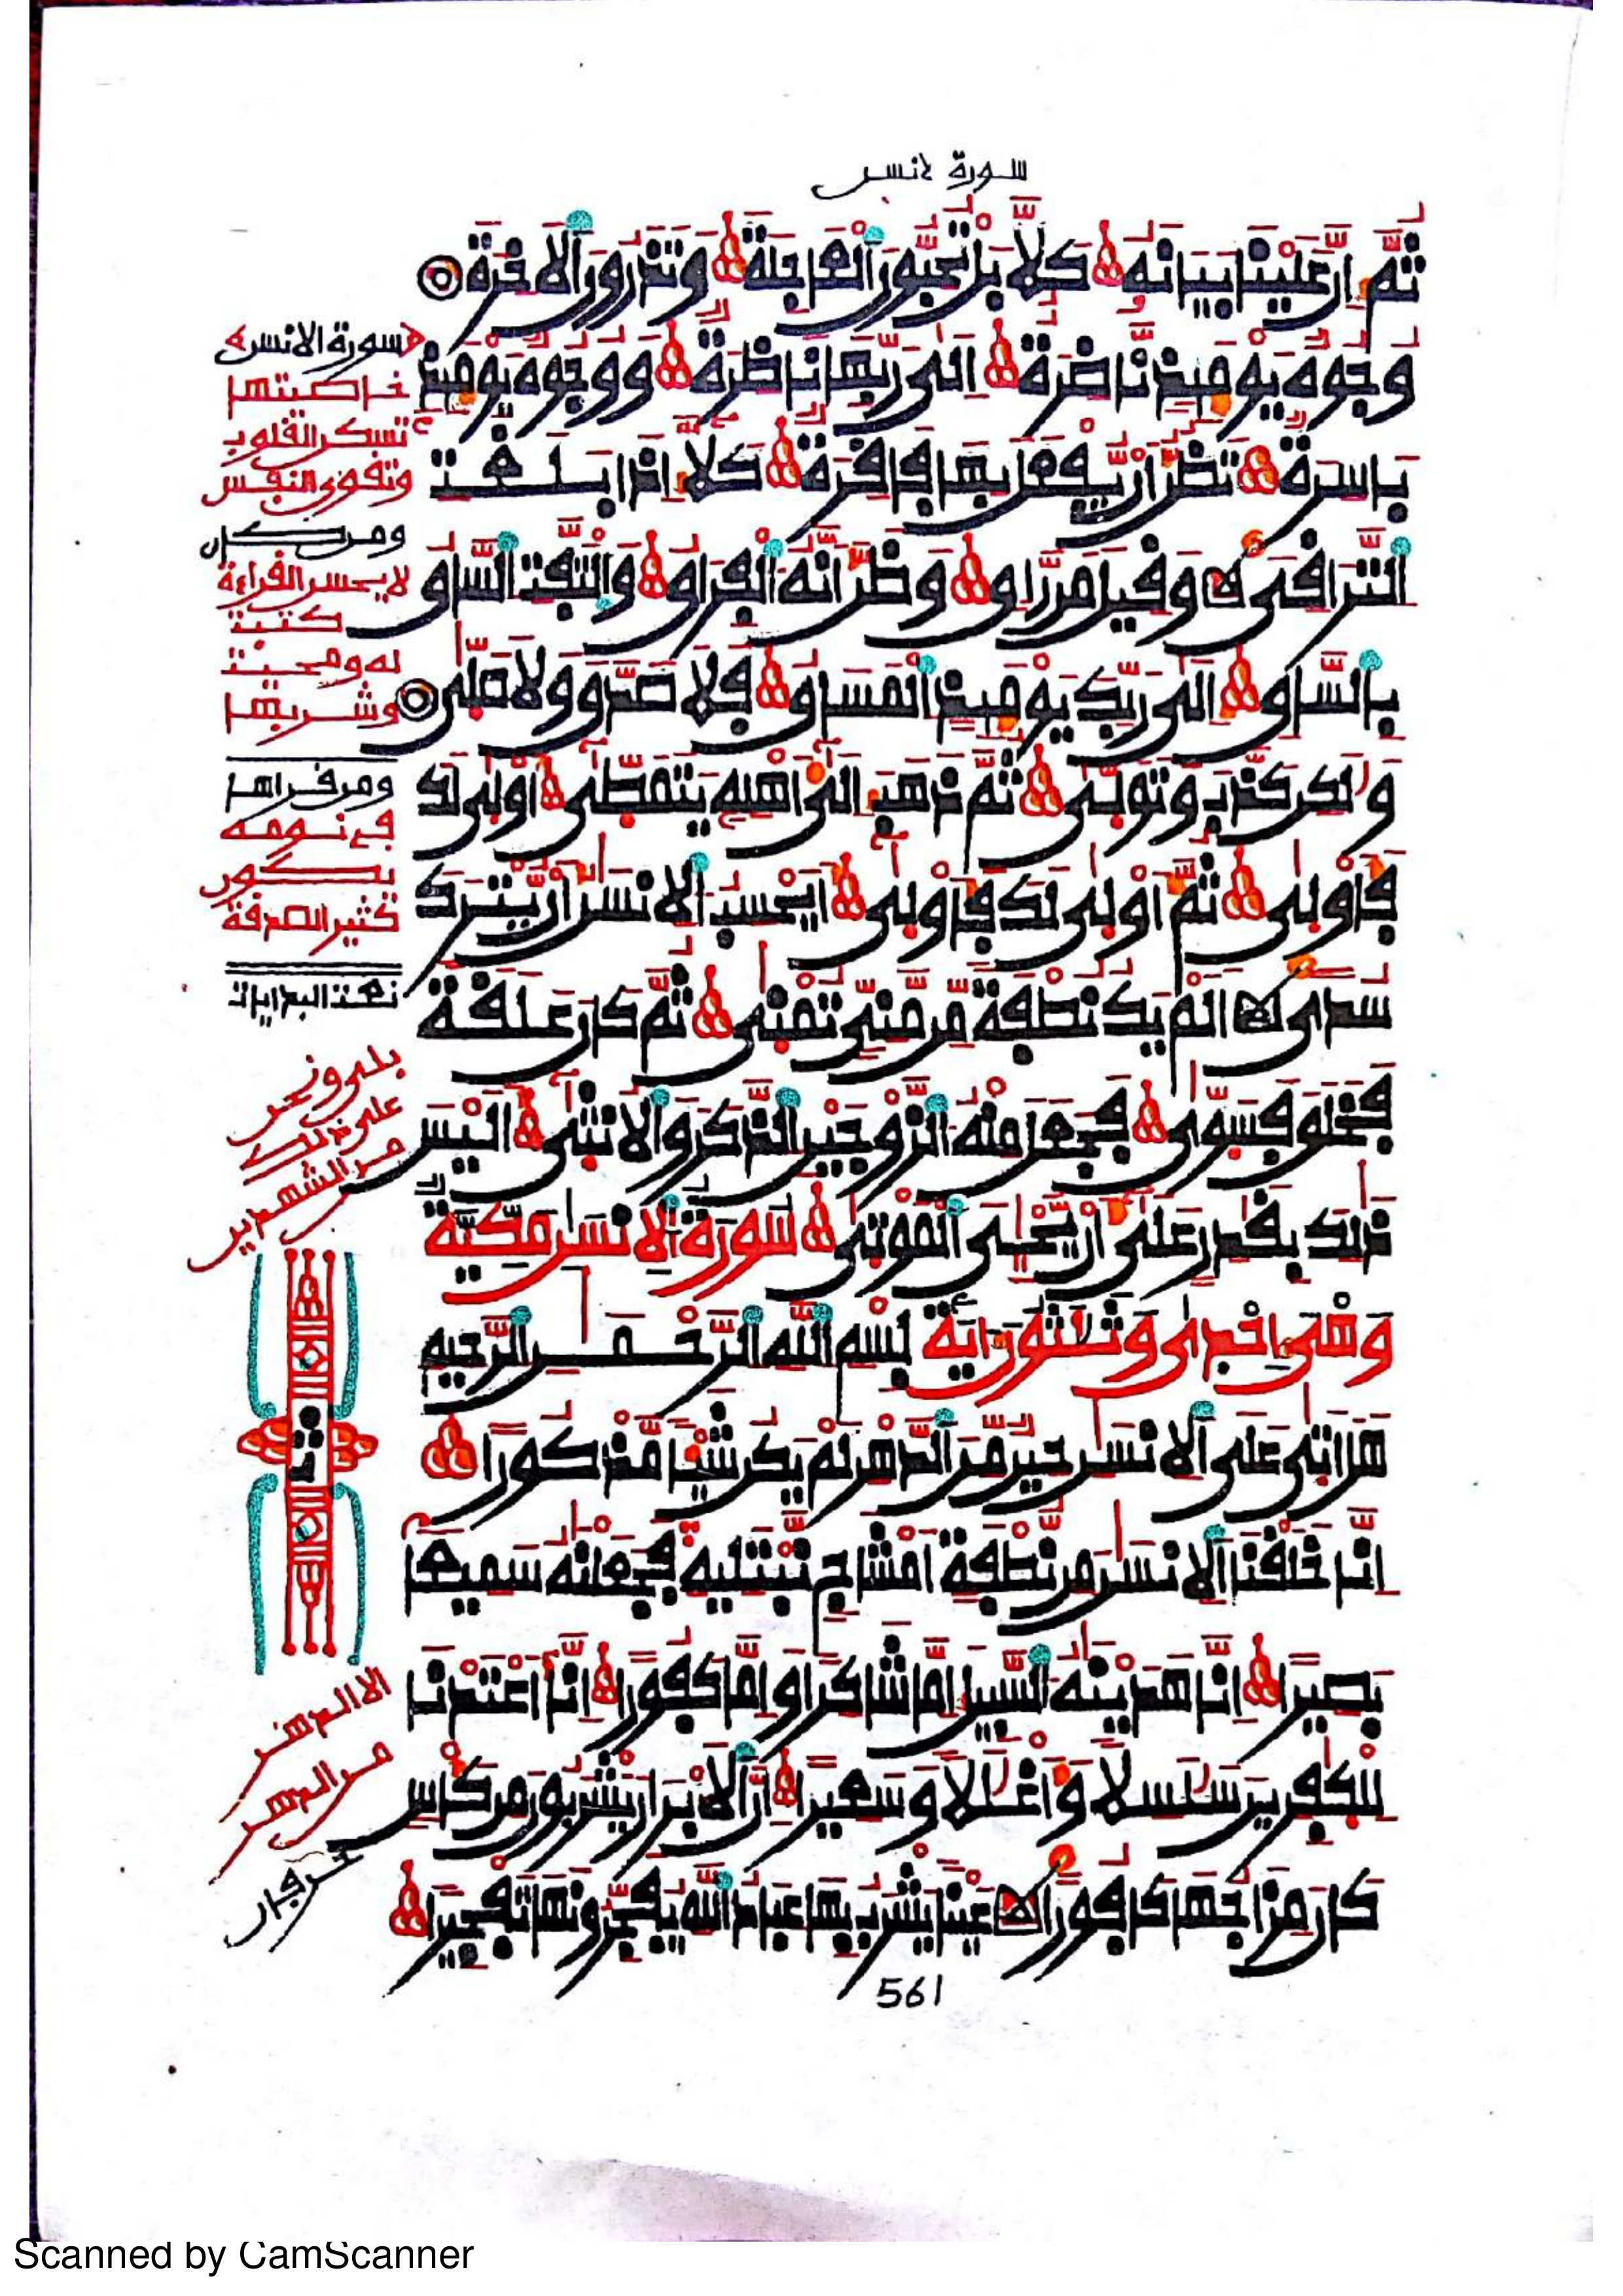 سورة انسن
ثُمَّ إِنَّ عَلَيْنَا بَيَانَهُ كَلَّا بَلْ تُحِبُّونَ ٱلْعَاجِلَةَ وَتَذَرُونَ ٱلْأَخِرَةَ
وُجُوهٌ يَوْمَئِذٍ نَّاضِرَةٌ إِلَىٰ رَبِّهَا نَاظِرَةٌ وَوُجُوهٌ يَوْمَئِذٍ
بَاسِرَةٌ تَظُنُّ أَنْ يُّفْعَلَ بِهَا فَاقِرَةٌ كَلَّا إِذَا بَلَغَتِ
ٱلتَّرَاقِيَ وَقِيلَ مَن رَّاقٍ وَظَنَّ أَنَّهُ ٱلْفِرَاقُ وَٱلْتَفَّتِ ٱلسَّاقُ
بِٱلسَّاقِ إِلَىٰ رَبِّكَ يَوْمَئِذٍ ٱلْمَسَاقُ فَلَا صَدَّقَ وَلَا صَلَّىٰ
وَلَٰكِن كَذَّبَ وَتَوَلَّىٰ ثُمَّ ذَهَبَ إِلَىٰ أَهْلِهِ يَتَمَطَّىٰ أَوْلَىٰ لَكَ
فَأَوْلَىٰ ثُمَّ أَوْلَىٰ لَكَ فَأَوْلَىٰ أَيَحْسِبُ ٱلْإِنسَٰنُ أَنْ يُّتْرَكَ
سُدًى أَلَمْ يَكُ نُطْفَةً مِّن مَّنِيٍّ تُمْنَىٰ ثُمَّ كَانَ عَلَقَةً
فَخَلَقَ فَسَوَّىٰ فَجَعَلَ مِنْهُ ٱلزَّوْجَيْنِ ٱلذَّكَرَ وَٱلْأُنثَىٰ أَلَيْسَ
ذَٰلِكَ بِقَٰدِرٍ عَلَىٰ أَنْ يُّحْـِۧيَ ٱلْمَوْتَىٰ سُورَةُ ٱلْإِنسَٰنِ مَكِّيَّةٌ
وَهْىَ إِحْدَىٰ وَثَلَٰثُونَ ءَايَةً بِسْمِ ٱللَّهِ ٱلرَّحْمَٰنِ ٱلرَّحِيمِ
هَلْ أَتَىٰ عَلَى ٱلْإِنسَٰنِ حِينٌ مِّنَ ٱلدَّهْرِ لَمْ يَكُن شَيْـًٔا مَّذْكُورًا
إِنَّا خَلَقْنَا ٱلْإِنسَٰنَ مِن نُّطْفَةٍ أَمْشَاجٍ نَّبْتَلِيهِ فَجَعَلْنَٰهُ سَمِيعًا
بَصِيرًا إِنَّا هَدَيْنَٰهُ ٱلسَّبِيلَ إِمَّا شَاكِرًا وَإِمَّا كَفُورًا إِنَّا أَعْتَدْنَا
لِلْكَٰفِرِينَ سَلَٰسِلًا وَأَغْلَٰلًا وَسَعِيرًا إِنَّ ٱلْأَبْرَارَ يَشْرَبُونَ مِن كَأْسٍ
كَانَ مِزَاجُهَا كَافُورًا عَيْنًا يَشْرَبُ بِهَا عِبَادُ ٱللَّهِ يُفَجِّرُونَهَا تَفْجِيرًا
سورة الانسن
خاصيتها
تسكن القلوب
وتقوى النفس
ومن كان
لا يحسن القراءة
كتبت
له ومحيت
وشربها
ومن قراها
في نومه
يكون
كثير الصدقة
نعت البدايات
بلى ونحن
على ذلك
من الشهدين
ثمن
561
Scanned by CamScanner